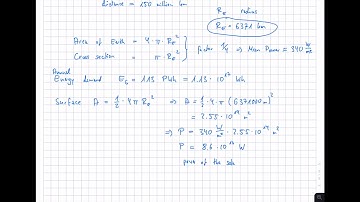 distance = 150 million km
R_E radius
R_E = 6371 km
Area of Earth = 4 · π · R_E²
Cross section = π · R_E²
} factor 1/4 ⇒ Mean Power = 340 W/m²
Annual
Energy demand E_G = 113 PWh = 1.13 · 10¹⁷ Wh
Surface A = 1/3 · 4π R_E² ⇒ A = 1/3 · 4 · π (6371000 m)²
= 2.55 · 10¹⁴ m²
⇒ P = 340 W/m² · 2.55 · 10¹⁴ m²
P = 8.6 · 10¹⁶ W
power of the sun